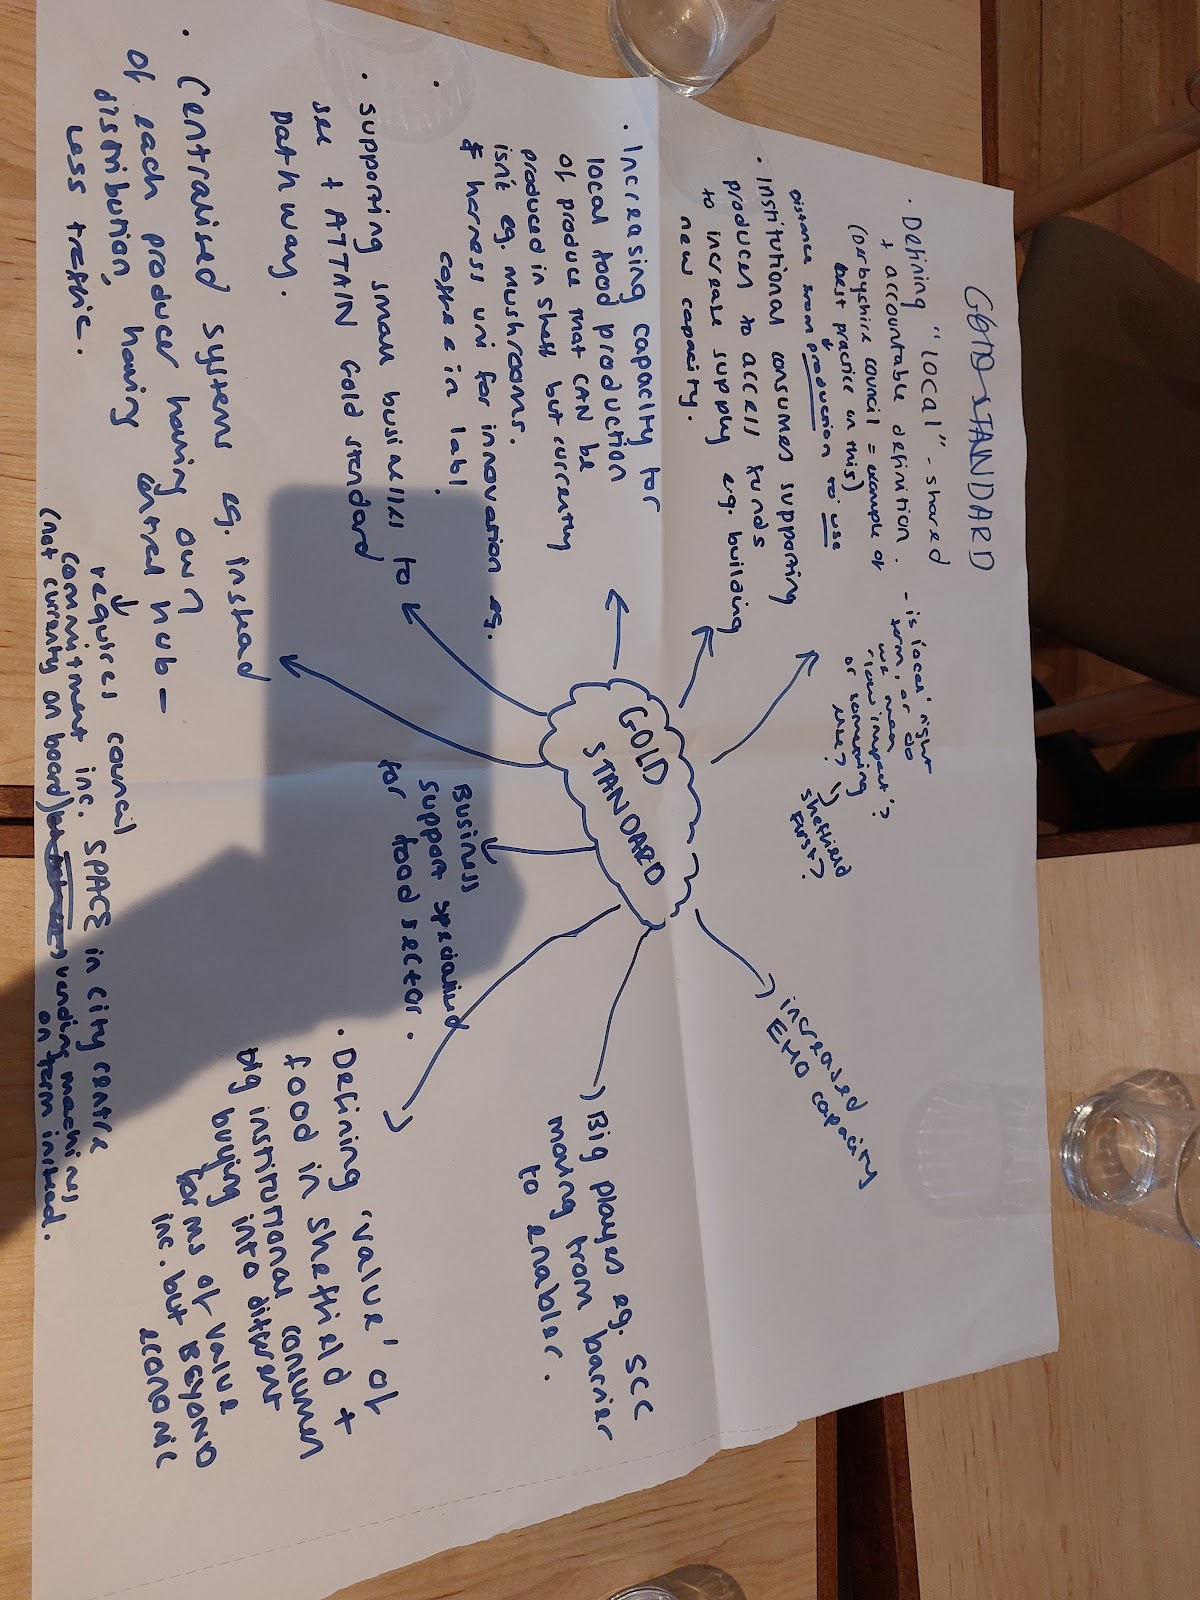 GOLD STANDARD
· Defining "local" - shared
+ accountable definition.
(Derbyshire council = example of
best practice on this)
Distance from production to use
- is 'local' right
term, or do
we mean
'low impact'?
or something
else?
Sheffield
First?
· Institutional consumers supporting
producers to access funds
to increase supply eg. building
new capacity.
· Increasing capacity for
local food production
of produce that CAN be
produced in Sheff but currently
isn't eg. mushrooms.
& harness uni for innovation eg.
coffee in lab!
· supporting small businesses to
see + ATTAIN Gold standard
pathway.
· Centralised systems eg. instead
of each producer having own
distribution, having central hub -
less traffic.
requires council
commitment inc. SPACE in city centre
(not currently on board) vending machines
on farm instead.
GOLD
STANDARD
Business
support specialised
for food sector.
increased
EHO capacity
Big players eg. SCC
moving from barrier
to enabler.
· Defining 'value' of
food in Sheffield +
big institutional consumers
buying into different
forms of value
inc. but BEYOND
economic